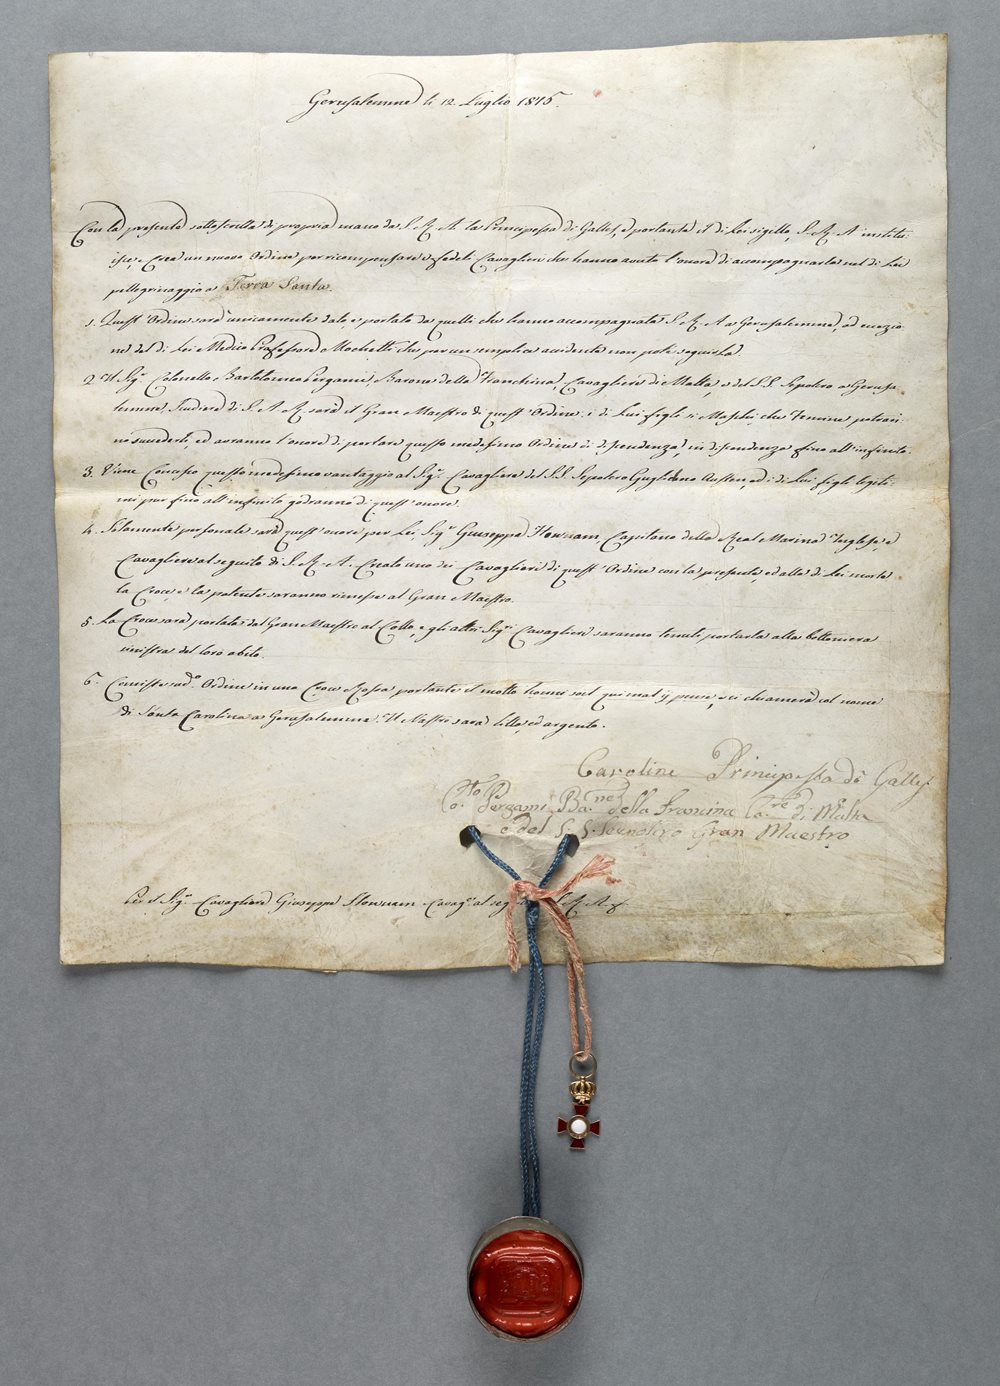 Gerusalemme li 12 Luglio 1816.
Con la presente sottoscritta di propria mano da S. A. R. la Principessa di Galles, e portante il di Lei sigillo, S. A. R. institu-
isce, e Crea un nuovo Ordine per ricompensare i fedeli Cavaglieri che hanno avuto l'onore di accompagnarla nel di Lei
pellegrinaggio a Terra Santa.
1. Quest' Ordine sarà unicamente dato, e portato da quelli che hanno accompagnata S. A. R. a Gerusalemme, ad eccezio-
ne del di Lei Medico Professore Mochetti che per un semplice accidente non potè seguirla.
2. Il Sigr. Colonello Bartolomeo Pergami, Barone della Franchina, Cavagliere di Malta, e del S. S. Sepolcro a Gerusa-
lemme, Scudiere di S. A. R. sarà il Gran Maestro di quest' Ordine, e di Lui figli si Maschi, che Femine potran-
no succederli, ed avranno l'onore di portare questo medesimo Ordine di dependenza, in dependenza fino all'infinito.
3. Viene Concesso questo medesimo vantaggio al Sigr. Cavagliere del S. S. Sepolcro Guglielmo Austin ed i di Lui figli legiti-
mi pur fino all'infinito godranno di quest' onore.
4. Solamente personale sarà quest' onore per Lei, Sigr. Giuseppe Hownam, Capitano della Real Marina Inglese, e
Cavagliere al seguito di S. A. R. Creato uno dei Cavaglieri di quest' Ordine con la presente, ed alla di Lei morte
la Croce, e la patente saranno rimesse al Gran Maestro.
5. La Croce sarà portata dal Gran Maestro al Collo, e gli altri Sigri. Cavaglieri saranno tenuti portarla alla bottoniera
sinistra del loro abito.
6. Consiste ad.o Ordine in una Croce Rossa portante il motto honni soit qui mal y pense, e si chiamerà col nome
di Santa Carolina a Gerusalemme. Il Nastro sarà lilla, ed argento.
Caroline Principessa di Galles.
Co. Pergami Bane. della Francina Care. di Malta
e del S. S. Sepolcro Gran Maestro
Per il Sigr. Cavagliere Giuseppe Hownam Cavage. al seg A. R.